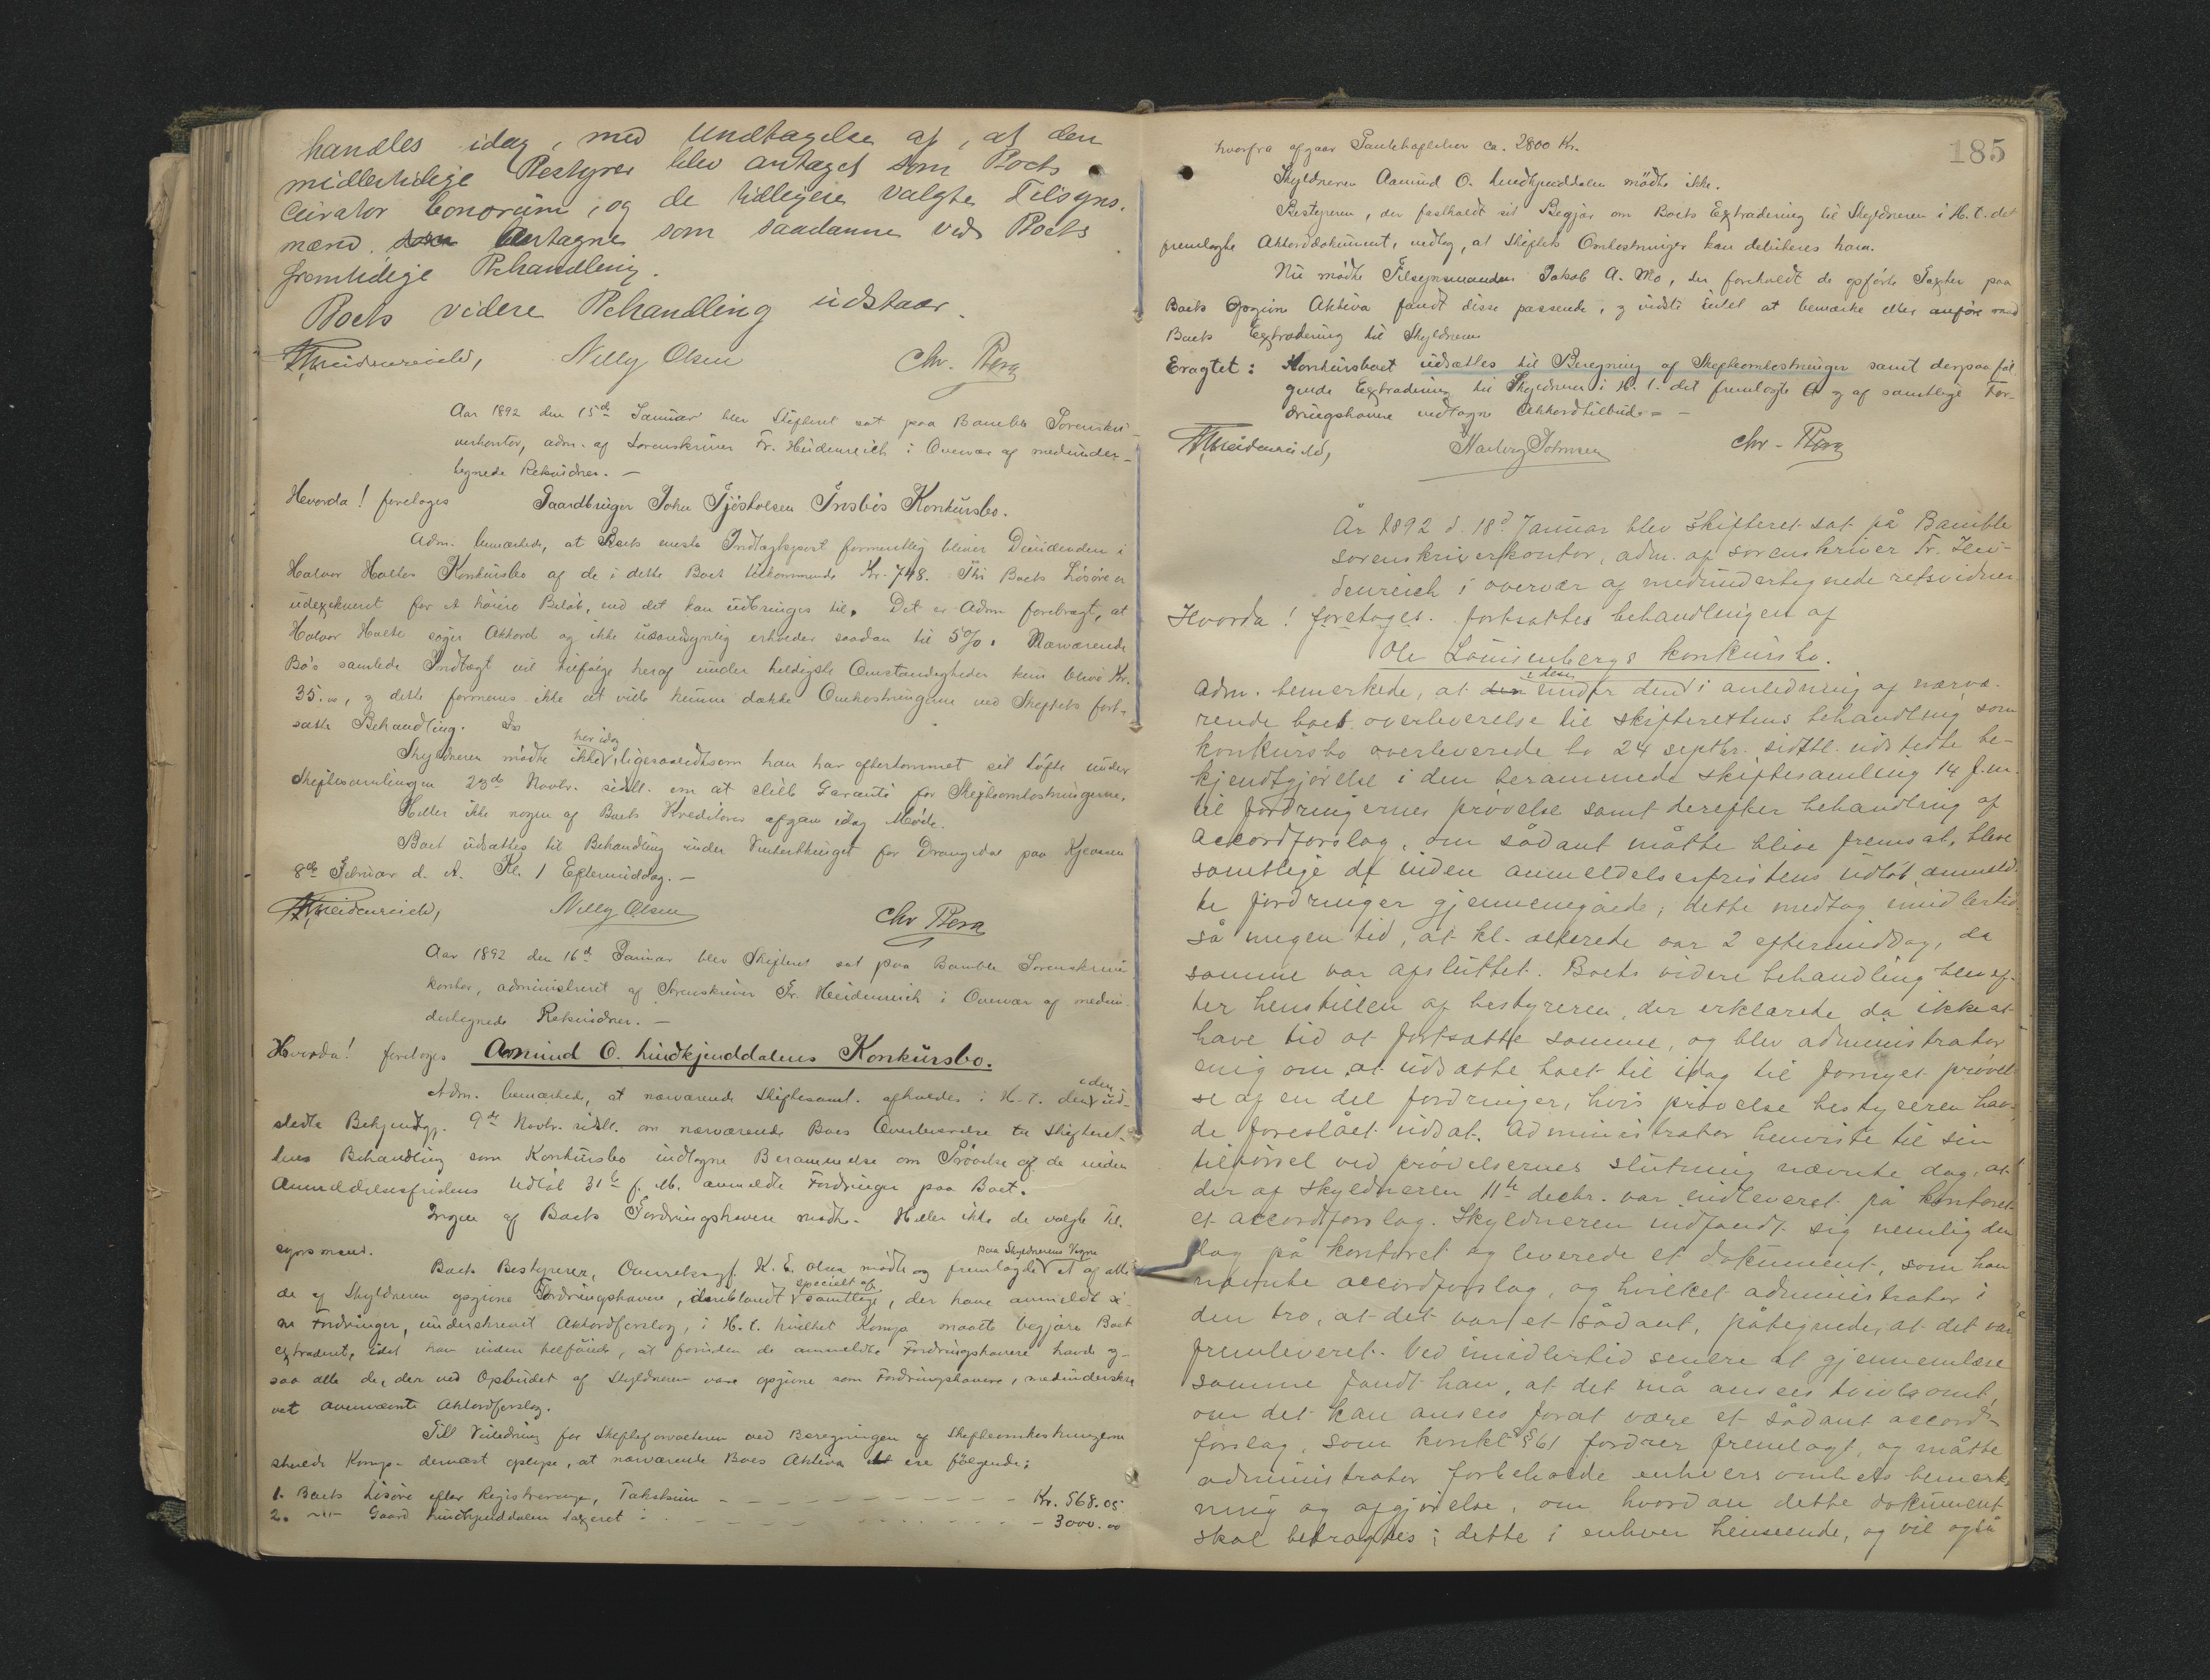 handles idag, med Undtagelse af, at den
midlertidige Bestyrer blev antaget som Boets
Curator bonorum, og de tidligere valgte Tilsyns-
mænd antagne som saadanne ved Boets
fremtidige Behandling.
Boets videre Behandling udstaar.
Fr. Heidenreich, Nelly Olsen Chr. Berg
Aar 1892 den 15de Januar blev Skifteret sat paa Bamble Sorenskri-
verkontor, adm. af Sorenskriver Fr. Heidenreich i Overvær af medunder-
tegnede Retsvidner. —
Hvorda! foretoges Gaardbruger John Gjøstolsen Insbøs Konkursbo.
Adm. bemærkede, at Boets eneste Indtægtspost formentlig bliver Dividenden i
Halvor Haltes Konkursbo af de i dette Boet tilkommende Kr. 748. Thi Boets Løsøre er
udexekveret for et høiere Beløb, end det kan udbringes til. Det er Adm. forebragt, at
Halvor Halte søger Akkord og ikke usandsynlig erholder saadan til 5%. Nærværende
Bo's samlede Indtægt vil tilfølge heraf under heldigste Omstændigheder kun blive Kr.
35.00, og dette formenes ikke at ville kunne dække Omkostningerne ved Skiftets fort-
satte Behandling.
Skyldneren mødte ikke her idag, ligesaalidt som han har efterkommet sit Løfte under
Skiftesamlingen 23de Novbr. sidstl. om at stille Garanti for Skifteomkostningerne.
Heller ikke nogen af Boets Kreditorer afgav idag Møde.
Boet udsættes til Behandling under Vinterthinget for Drangedal paa
8de Februar d. A. Kl. 1 Eftermiddag. —
Fr. Heidenreich, Nelly Olsen Chr Berg
Aar 1892 den 16de Januar blev Skifteret sat paa Bamble Sorenskriver-
kontor, administreret af Sorenskriver Fr. Heidenreich i Overvær af medun-
dertegnede Retsvidner. —
Hvorda! foretoges Aamund O. Lindkjenddalens Konkursbo.
Adm. bemærkede, at nærværende Skiftesaml. afholdes i H. t. den i den ud-
stedte Bekjendtgj. 9de Novbr. sidstl. om nærværende Boes Overleverelse til Skifteret-
tens Behandling som Konkursbo indtagne Berammelse om Prøvelse af de inden
Anmeldelsesfristens Udløb 31te f. M. anmeldte Fordringer paa Boet.
Ingen af Boets Fordringshavere mødte. Heller ikke de valgte Til-
synsmænd.
Boets Bestyrer, Overretssagf. K. E. Olsen mødte og fremlagde paa Skyldnerens Vegne et af alle
de af Skyldneren opgivne Fordringshavere, deriblandt specielt af samtlige, der have anmeldt si-
ne Fordringer, underskrevet Akkordforslag, i H. t. hvilket Komp. maatte begjære Boet
extraderet, idet han videre tilføiede, at foruden de anmeldte Fordringshavere havde og-
saa alle de, der ved Opbudet af Skyldneren vare opgivne som Fordringshavere, medunderskre-
vet ovennævnte Akkordforslag.
Till Veiledning for Skifteforvalteren ved Beregningen af Skifteomkostningerne
skulde Komp. dernæst oplyse, at nærværende Boes Aktiva ere følgende:
1. Boets Løsøre efter Registrering, Takstsum — Kr. 568.05
2. —"— Gaard Lindkjenddalen taxeret — 3000.00
185
hvorfra afgaar Pantehæftelser ca. 2800 Kr.
Skyldneren Aamund O. Lindkjenddalen mødte ikke.
Bestyreren, der fastholdt sit Begjær om Boets Extradering til Skyldneren i H. t. det
fremlagte Akkorddokument, vedtog, at Skiftets Omkostninger kan debiteres ham.
Nu mødte Tilsynsmanden Jakob A. Mo, der foreholdt de opførte Taxter paa
Boets opgivne Aktiva fandt disse passende, og vidste intet at bemærke eller anføre mod
Boets Extradering til Skyldneren
Eragtet: Konkursboet udsættes til Beregning af Skifteomkostninger samt derpaa føl-
gende Extradering til Skyldneren i H. t. det fremlagte og af samtlige For-
dringshavere vedtagne Akkordtilbud. —
Fr. Heidenreich, Johnsen Chr. Berg
År 1892 d. 18d Januar blev skifteret sat på Bamble
sorenskriverkontor, adm. af sorenskriver Fr. Hei-
denreich i overvær af medundertegnede retsvidner.
Hvorda! foretoges fortsattes behandlingen af
Ole Louisenbergs konkursbo.
Adm. bemerkede, at under den i den i anledning af nærvæ-
rende boes overleverelse til skifterettens behandling som
konkursbo overleverede bo 24 septbr. sidstl. udstedte be-
kjendtgjørelse i den berammede skiftesamling 14 f.m.
til fordringernes prøvelse samt derefter behandling af
accordforslag, om sådant måtte blive fremsat, bleve
samtlige de inden anmeldelsesfristens udløb anmeld-
te fordringer gjennemgåede; dette medtog imidlertid
så megen tid, at kl. allerede var 2 eftermiddag, da
samme var afsluttet. Boets videre behandling blev ef-
ter henstillen af bestyreren, der erklærede da ikke at
have tid at fortsætte samme, og blev administrator
enig om at udsætte boet til idag til fornyet prøvel-
se af en del fordringer, hvis prøvelse bestyreren hav-
de foreslået udsat. Administrator henviste til sin
tilførsel ved prøvelsernes slutning nævnte dag, at
der af skyldneren 11te decbr. var indleveret på kontoret
et accordforslag. Skyldneren indfandt sig nemlig den
dag på kontoret og leverede et dokument, som han
nævnte accordforslag, og hvilket administrator i
den tro, at det var et sådant, påtegnede, at det var
fremleveret. Ved imidlertid senere at gjennemlæse
samme fandt han, at det må ansees tvivlsomt,
om det kan ansees forat være et sådant accord-
forslag, som konkl § 61 fordrer fremlagt, og måtte
administrator forbeholde enhvers bemærk-
ning og afgjørelse, om hvordan dette dokument
skal betragtes; dette i enhver henseende, og vil også